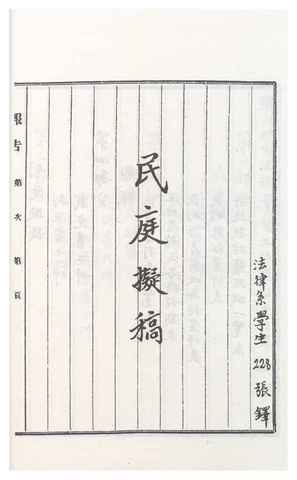 法律系學生 228 張鐸
民庭擬稿
報告 第 次 第 頁